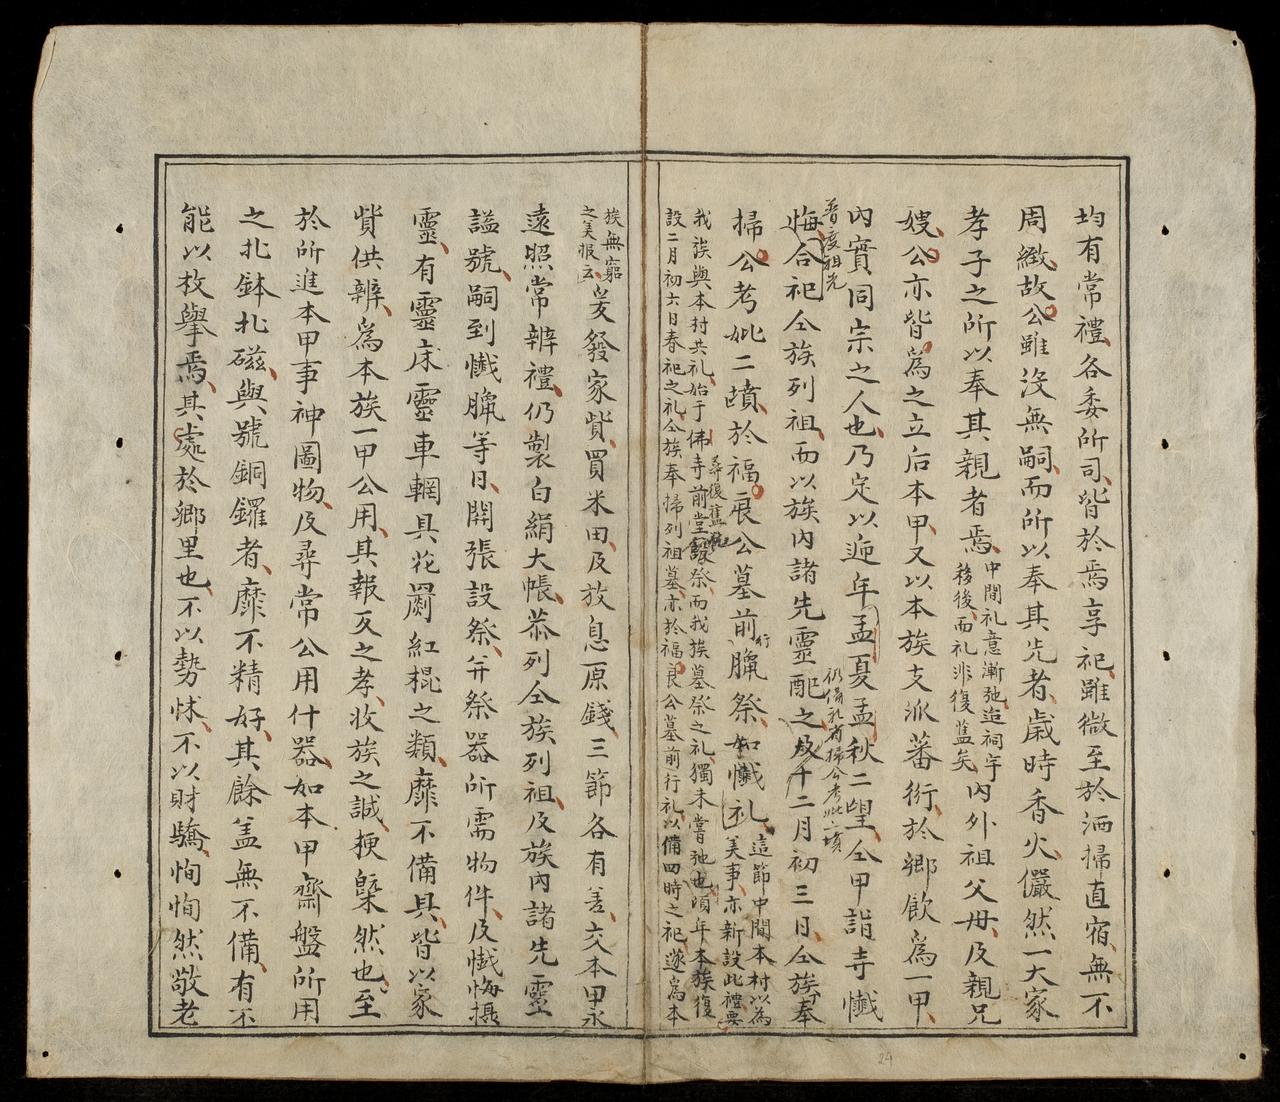 均有常禮各委所司皆於焉享祀雖微至於洒掃直宿無不
周緻故公雖沒無嗣而所以奉其先者歲時香火儼然一大家
孝子之所以奉其親者焉中間礼意漸弛迨祠宇移後而礼非復舊矣內外祖父母及親兄
嫂公亦皆為之立后本甲又以本族支派蕃衍於鄉飲為一甲
內實同宗之人也乃定以遞年孟夏孟秋二望仝甲詣寺懺
普度祖先
悔合祀仝族列祖而以族內諸先靈配之及十二月初三日仝族奉
仍備礼者掃公考妣二墳
掃公考妣二墳於福良公墓前行臘祭如懺礼這節中間本村以為美事亦新設此禮要
我族與本村共礼始于佛寺前堂祭而我族墓祭之礼獨未嘗弛也頃年本族復
尋復舊
設二月初六日春祀之礼仝族奉掃列祖墓亦於福良公墓前行礼以備四時之祀遂為本
族無窮之美報云爰發家貲買米田及放息原錢三節各有差交本甲永
遠照常辨禮仍製白絹大帳恭列仝族列祖及族內諸先靈
謚號嗣到懺臘等日開張設祭并祭器所需物件及懺悔攝
靈有靈床靈車輞具花罽紅棍之類靡不備具皆以家
貲供辨為本族一甲公用其報反之孝收族之誠梗槩然也至
於所進本甲事神圖物及尋常公用什器如本甲齋盤所用
之北鉢北磁與號銅鑼者靡不精好其餘盖無不備有不
能以枚擧焉其處於鄉里也不以勢怵不以財驕恂恂然敬老
24